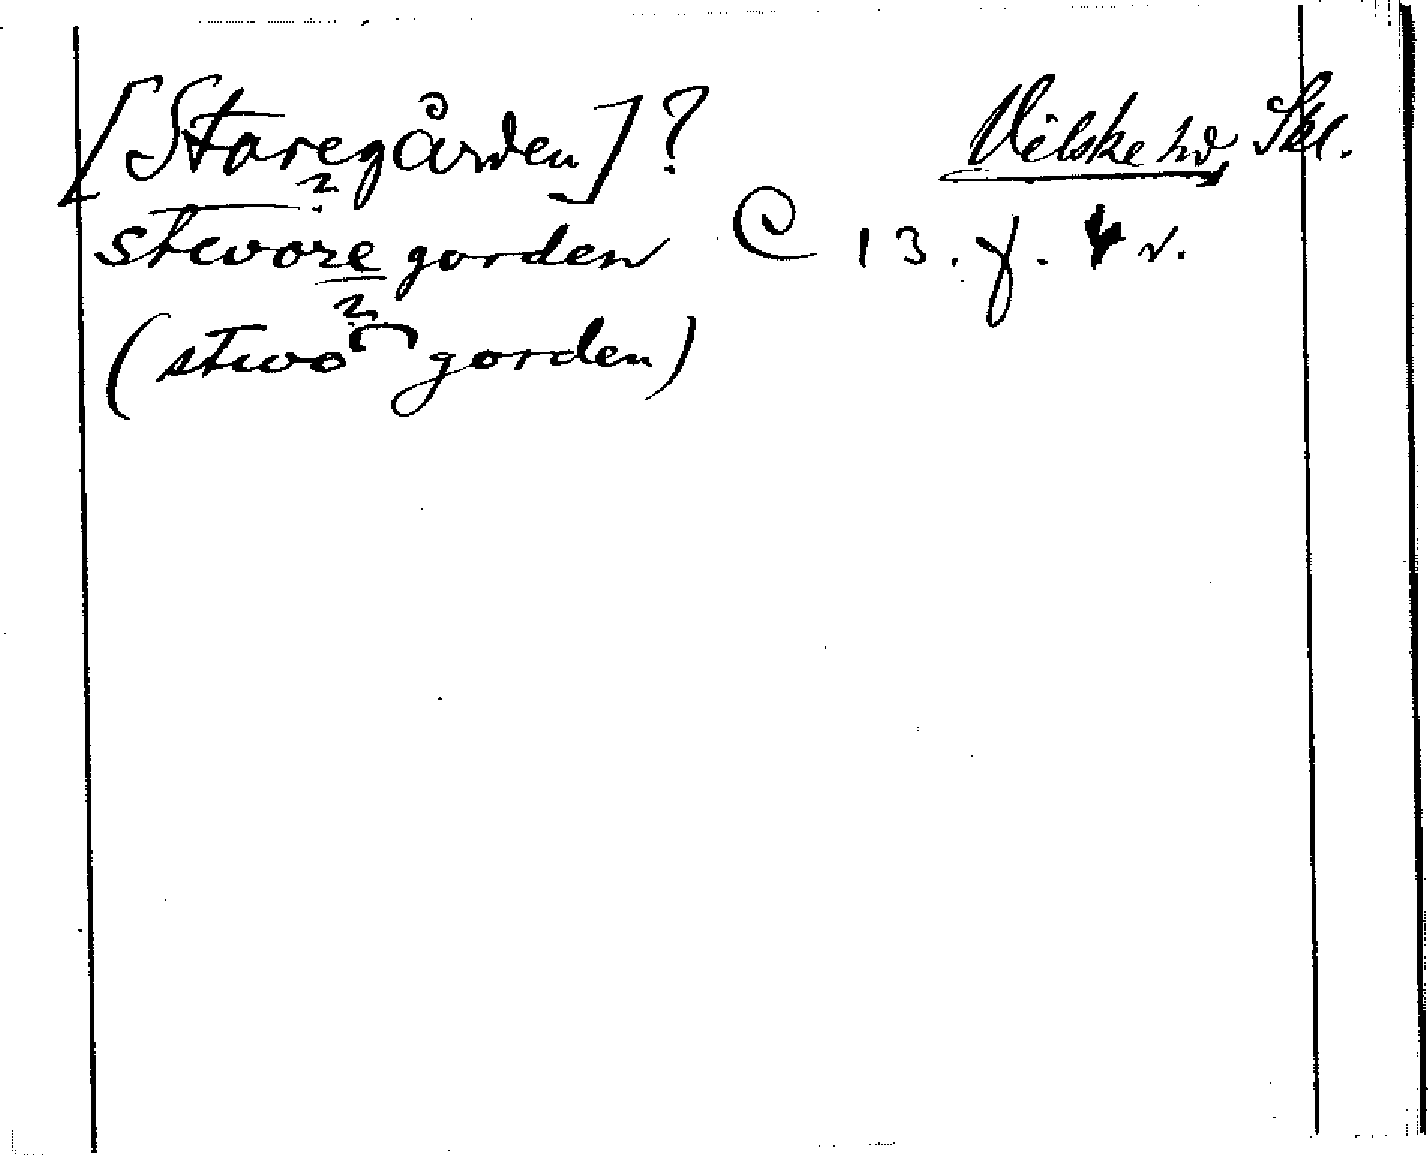 [Storegården]? Vilske hd Skl.
stwore gorden C 13. f. 4 v.
(stwo gorden)